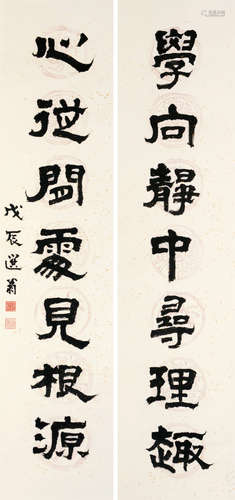 學向靜中尋理趣
心從閒處見根源
戊辰選翁